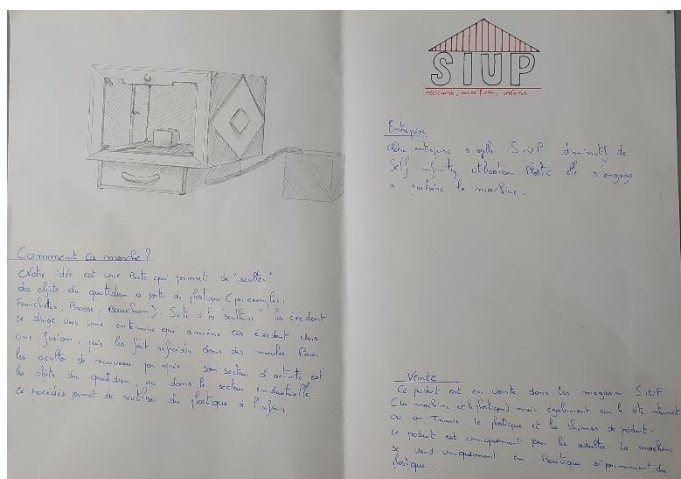 Comment ça marche?
Notre idée est une boite qui permet de "sculter"
des objets du quotidien a partir de plastique (par exemples:
Fourchettes, Brosse, Bouchon). Suite à la "sculture" les excédent
se dirige vers une qui amène ces éxédent vers
une fusion, puis les fait refroidir dans des moules Pour
les sculté de nouveau par après son secteur d'activité est
les objets du quotidien, ou dans le secteur industrielle.
ce procédés permet de réutiliser du plastique à l'infinie
SIUP
RECYCLONS, créons
Entreprise
Notre entreprise s'apelle SIUP diminutif de
Self infinity utilisation Plastic elle s'engage
a produire la machine.
Vente
Ce produit est en vente dans les magasin SIUP
(La machine et le plastique) mais également sur le site internet
ou on Trouve le plastique et les shémas de produit.
ce produit est uniquement pour les adultes. La machine
se vend uniquement en Boutique séparemment du
Plastique.